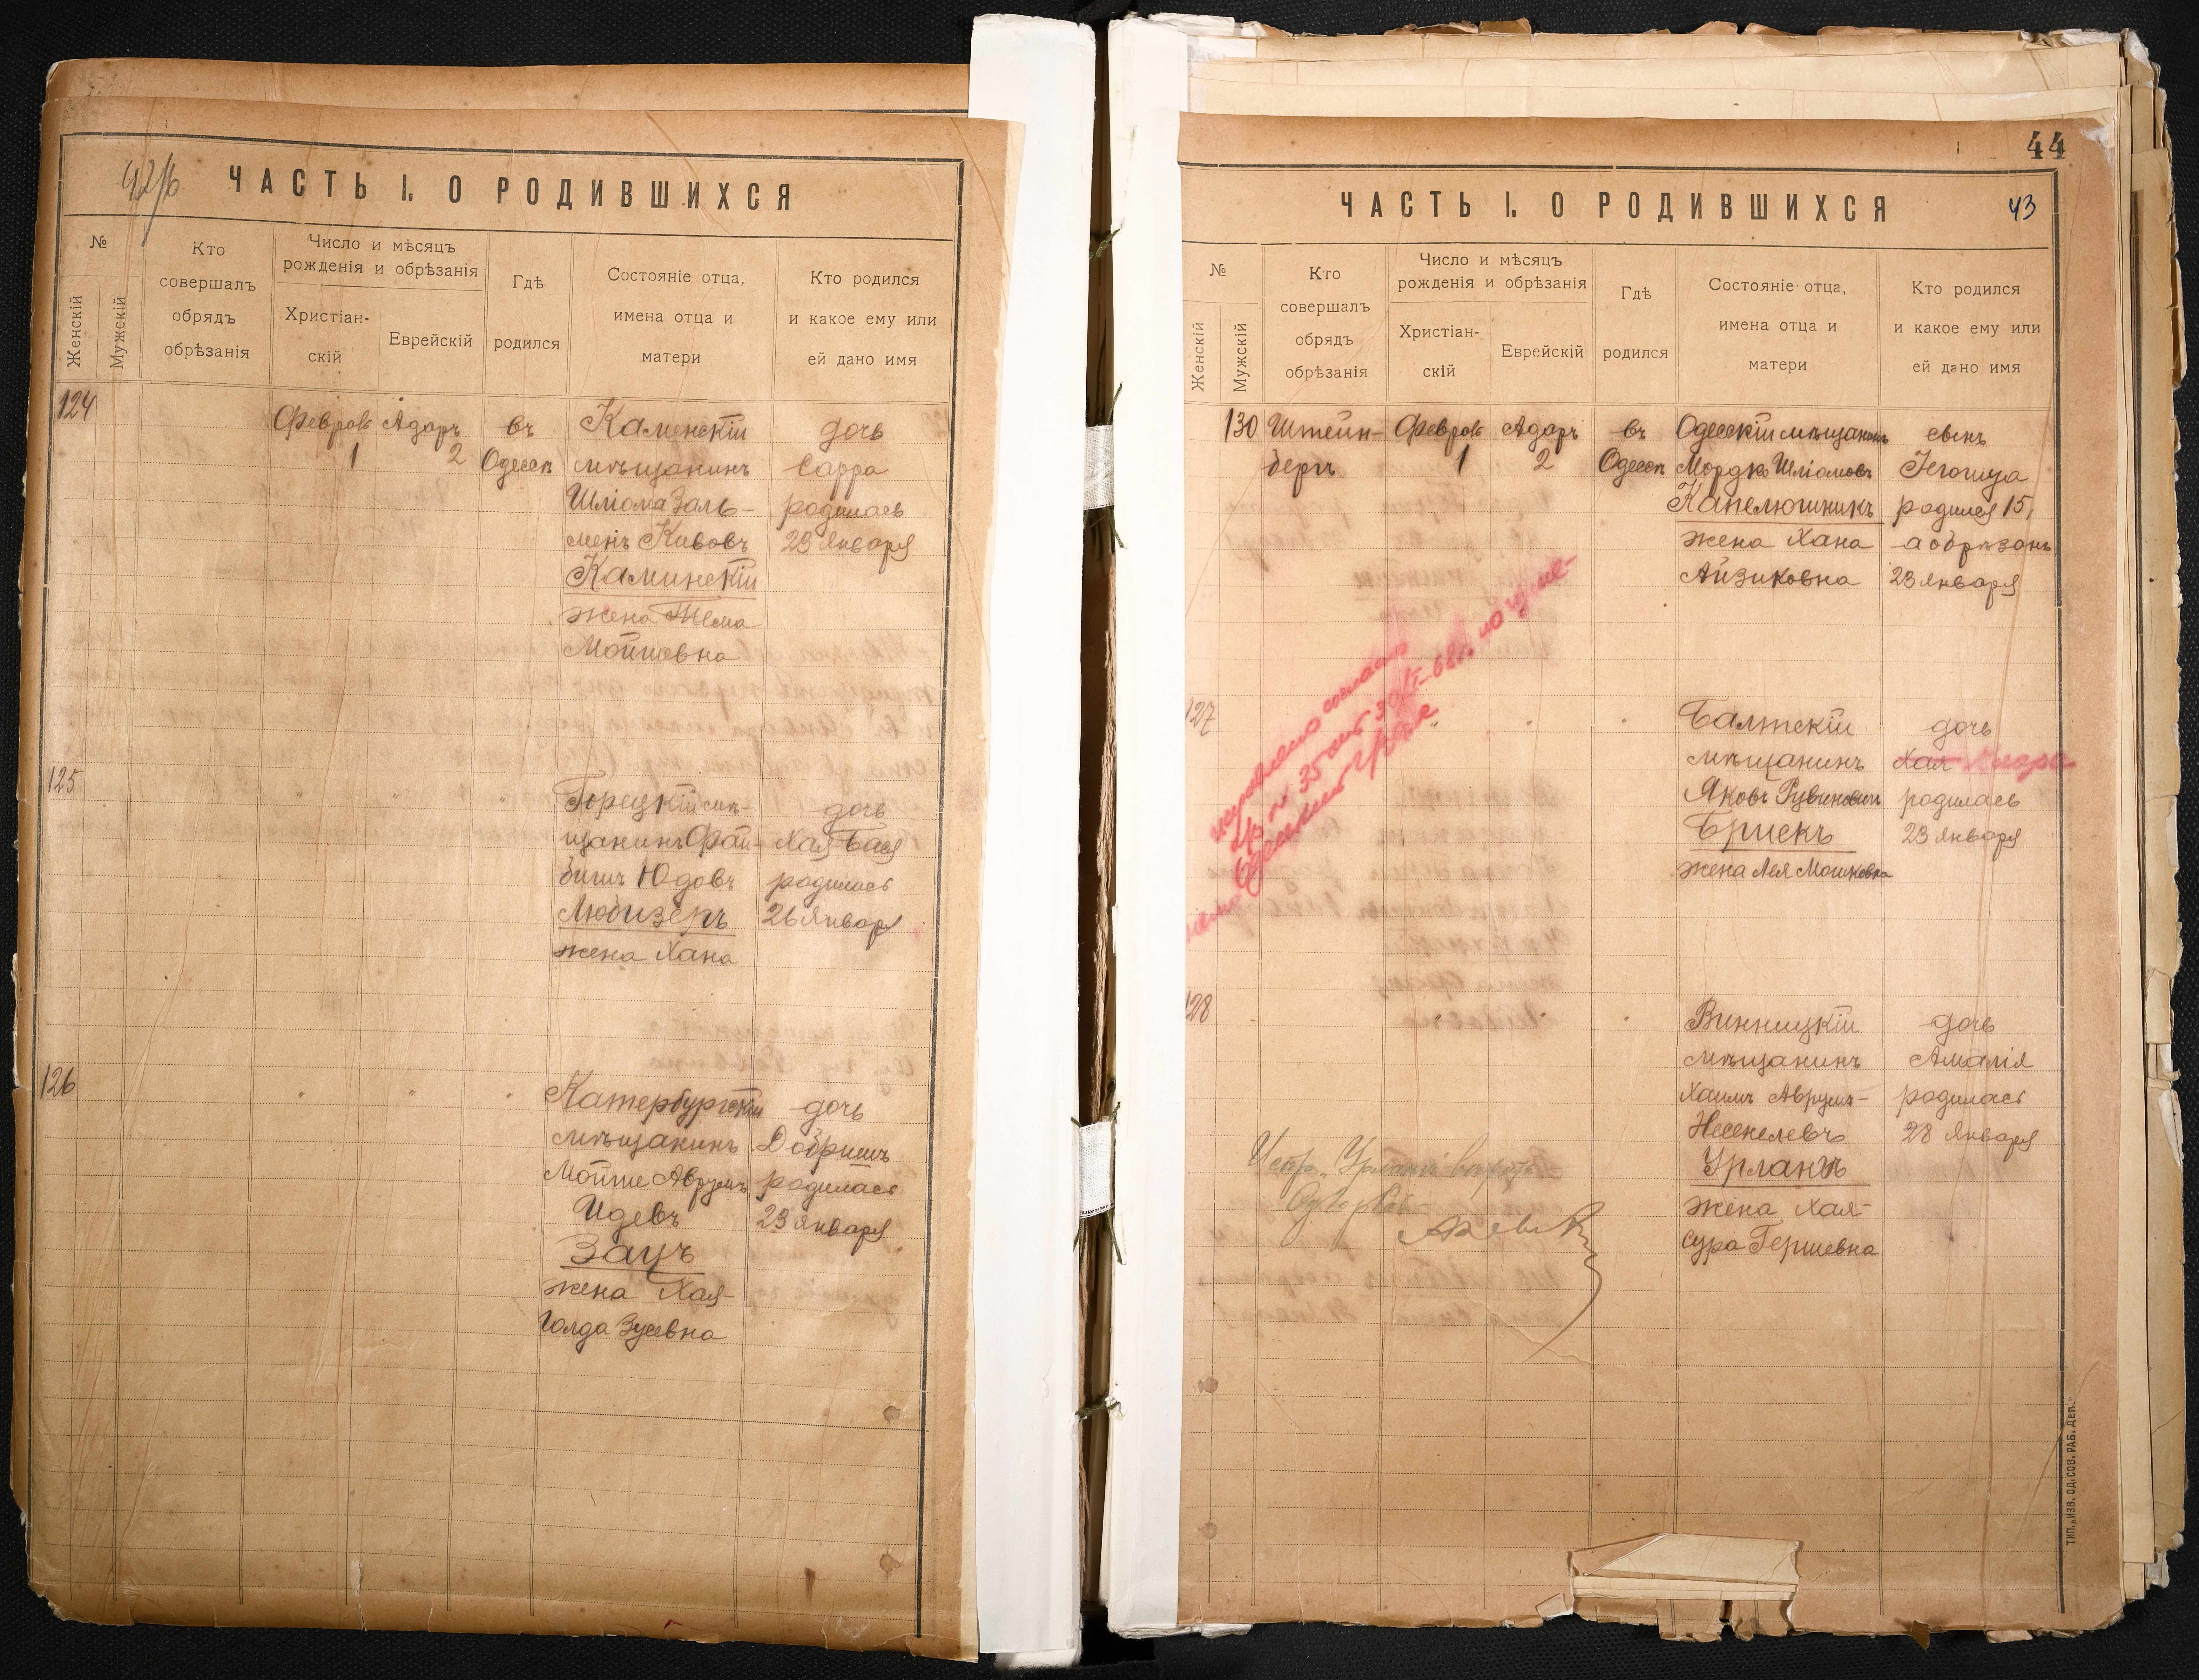 42/б
ЧАСТЬ I. О РОДИВШИХСЯ
№
Женскій
Мужскій
Кто
совершалъ
обрядъ
обрѣзанія
Число и мѣсяцъ
рожденія и обрѣзанія
Христіан-
скій
Еврейскій
Гдѣ
родился
Состояніе отца,
имена отца и
матери
Кто родился
и какое ему или
ей дано имя
124
Февраль Адаръ въ Каменскій дочь
1 2 Одессѣ мѣщанинъ Сарра
Шліома Заль- родилась
менъ Кивовъ 23 Января
Каминскій
жена
Мошковна
125
Горецкій мѣ- дочь
щанинъ Фай- Хая Бася
бишъ Юдовъ родилась
Любизеръ 26 Января
жена Хана
126
Катербургскій дочь
мѣщанинъ Добришъ
Мойше Аврумъ родилась
Идевъ 23 Января
Зацъ
жена Хая-
Голда Зусевна
44
ЧАСТЬ I. О РОДИВШИХСЯ
43
№
Женскій
Мужскій
Кто
совершалъ
обрядъ
обрѣзанія
Число и мѣсяцъ
рожденія и обрѣзанія
Христіан-
скій
Еврейскій
Гдѣ
родился
Состояніе отца,
имена отца и
матери
Кто родился
и какое ему или
ей дано имя
130 Штейн- Февраль Адаръ въ Одесскій мѣщанинъ сынъ
бергъ 1 2 Одессѣ Мордко Шліомовъ Іегошуа
Капелюшникъ родился 15,
жена Хана а обрѣзанъ
Айзиковна 23 Января
исправлено согласно
127
Балтскій дочь
мѣщанинъ Хая Клара
Яковъ Рувиновичъ родилась
Брискъ 23 Января
жена Лея Мошковна
128
Винницкій дочь
мѣщанинъ Амалія
Хаимъ Аврумъ- родилась
Несенелевъ 28 Января
Урланъ
жена Хая-
Сура Гершевна
ТИП. „ИЗВ. ОД. СОВ. РАБ. ДЕП.“